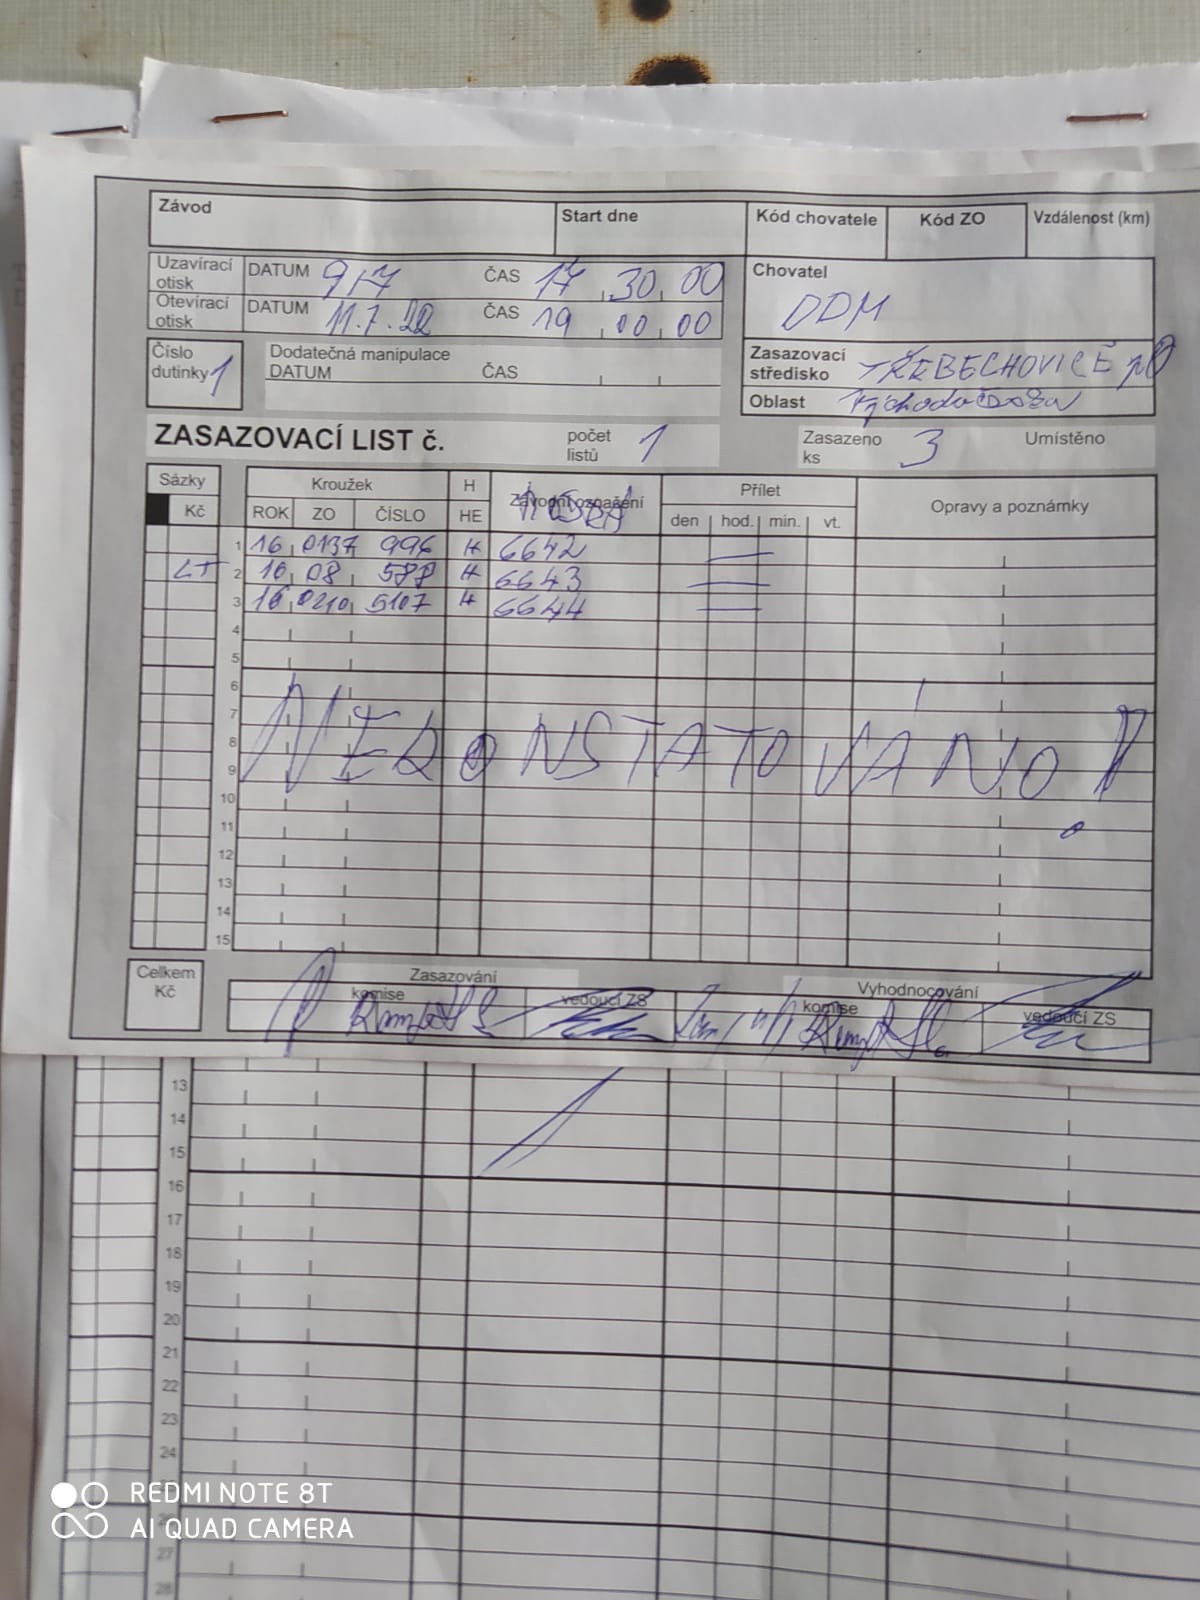 Závod Start dne Kód chovatele Kód ZO Vzdálenost (km)
Uzavírací otisk DATUM 9/7 ČAS 17 30 00 Chovatel
DDM
Otevírací otisk DATUM 11.7.22 ČAS 19 00 00
Číslo dutinky 1 Dodatečná manipulace
DATUM ČAS
Zasazovací středisko TŘEBECHOVICE p O
Oblast
ZASAZOVACÍ LIST č. počet listů 1 Zasazeno ks 3 Umístěno
Sázky Kroužek H Závodní označení Přílet Opravy a poznámky
Kč ROK ZO ČÍSLO HE GUMA den hod. min. vt.
1 16 0137 996 H 6642
LT 2 16 08 588 H 6643
3 16 0210 5107 H 6644
4
5
6
7
8
9
NEKONSTATOVÁNO!
10
11
12
13
14
15
Celkem Kč Zasazování Vyhodnocování
komise vedoucí ZS komise vedoucí ZS
13
14
15
16
17
18
19
20
21
22
23
24
27
28
REDMI NOTE 8T
AI QUAD CAMERA